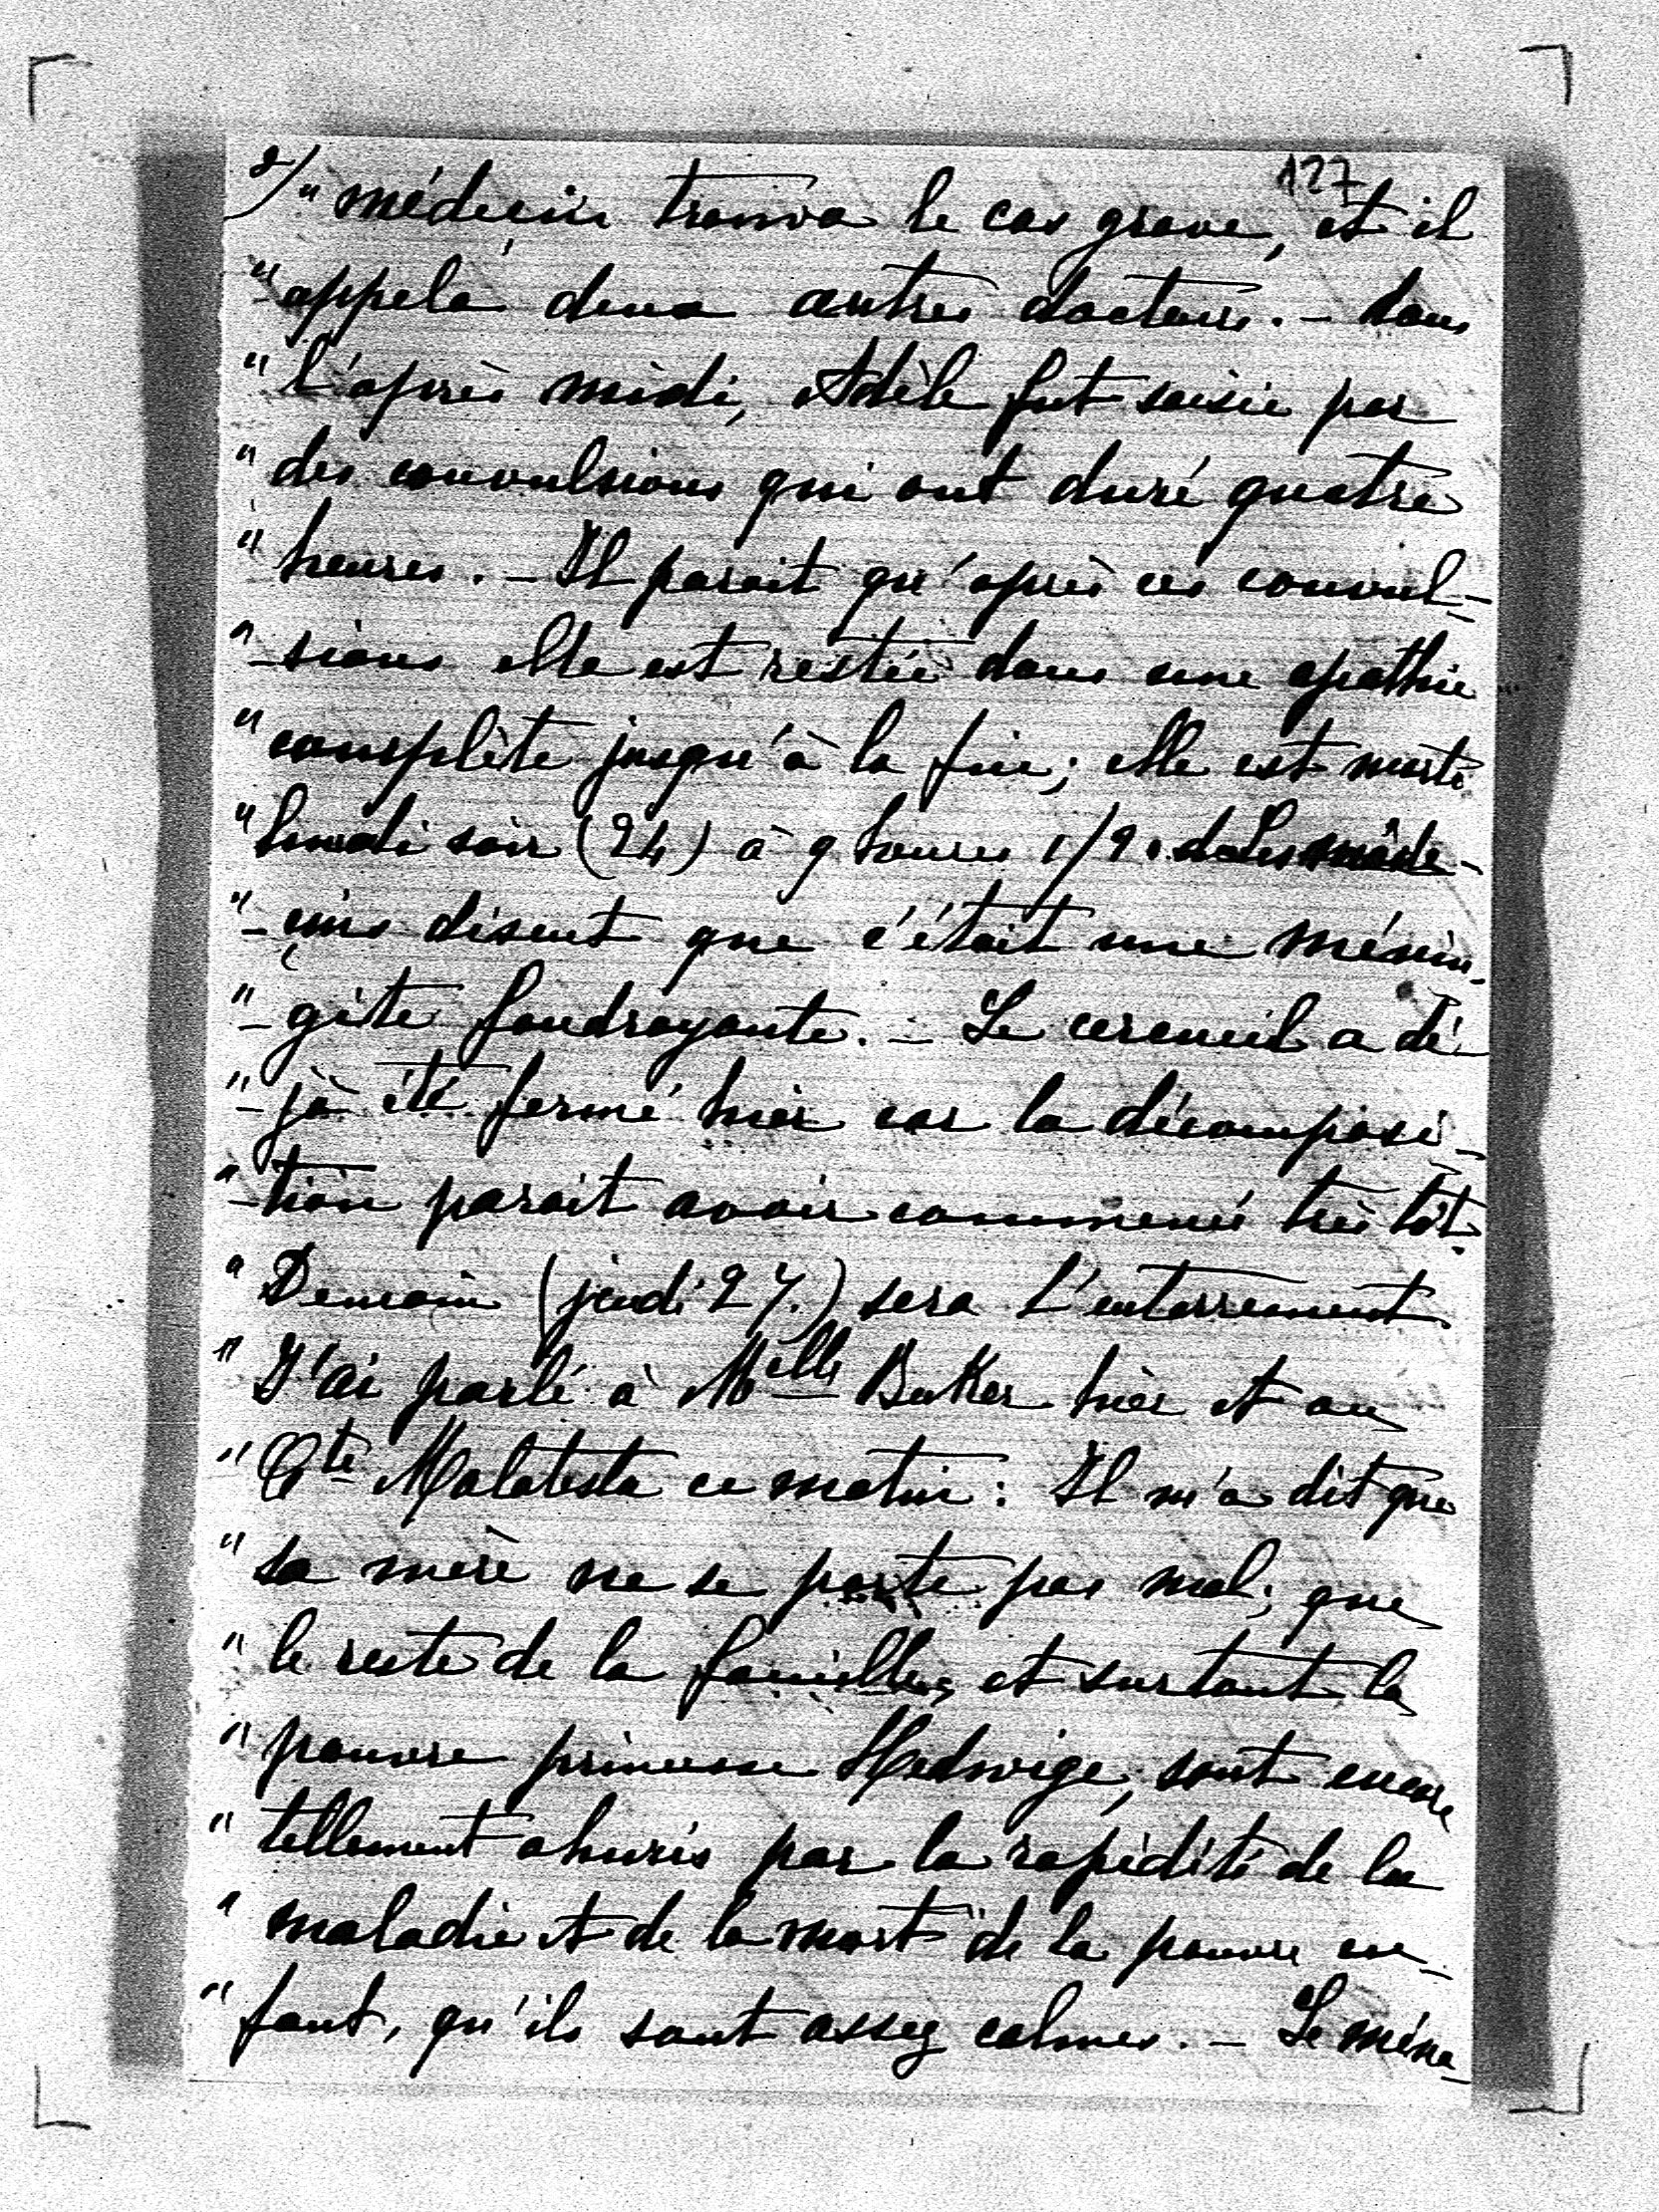 127
2/ " médecin trouva le cas grave, et il
" appela deux autres docteurs. - Dans
" l'après midi, Adèle fut saisie par
" des convulsions qui ont duré quatre
" heures. - Il parait qu'après ces convul-
" -sions elle est restée dans une apathie
" complète jusqu'à la fin; elle est morte
" lundi soir (24) à 9 heures 1/2. Les méde-
" -çins disent que c'était une ménin-
" -gite foudroyante. - Le cercueil a dé-
" -jà été fermé hier car la décomposi-
" -tion parait avoir commencé très tôt.
" Demain (jeudi 27.) sera l'enterrement.
" J'ai parlé à Melle Baker hier et au
" Cte Malatesta ce matin: Il m'a dit que
" sa mère ne se porte pas mal; que
" le reste de la famille, et surtout la
" pauvre princesse Hedwige, sont encore
" tellement ahuris par la rapidité de la
" maladie et de la mort de la pauvre en-
" fant, qu'ils sont assez calmes. - Le ména-